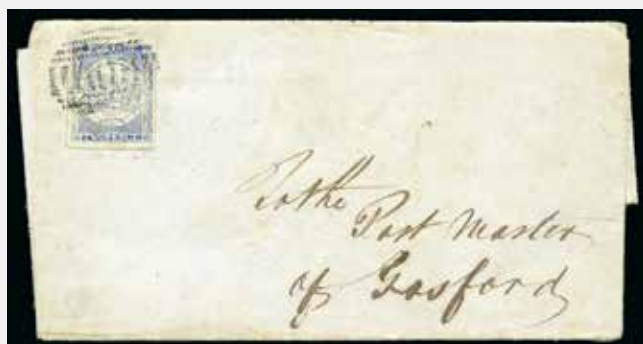 To the
Post Master
of Gosford